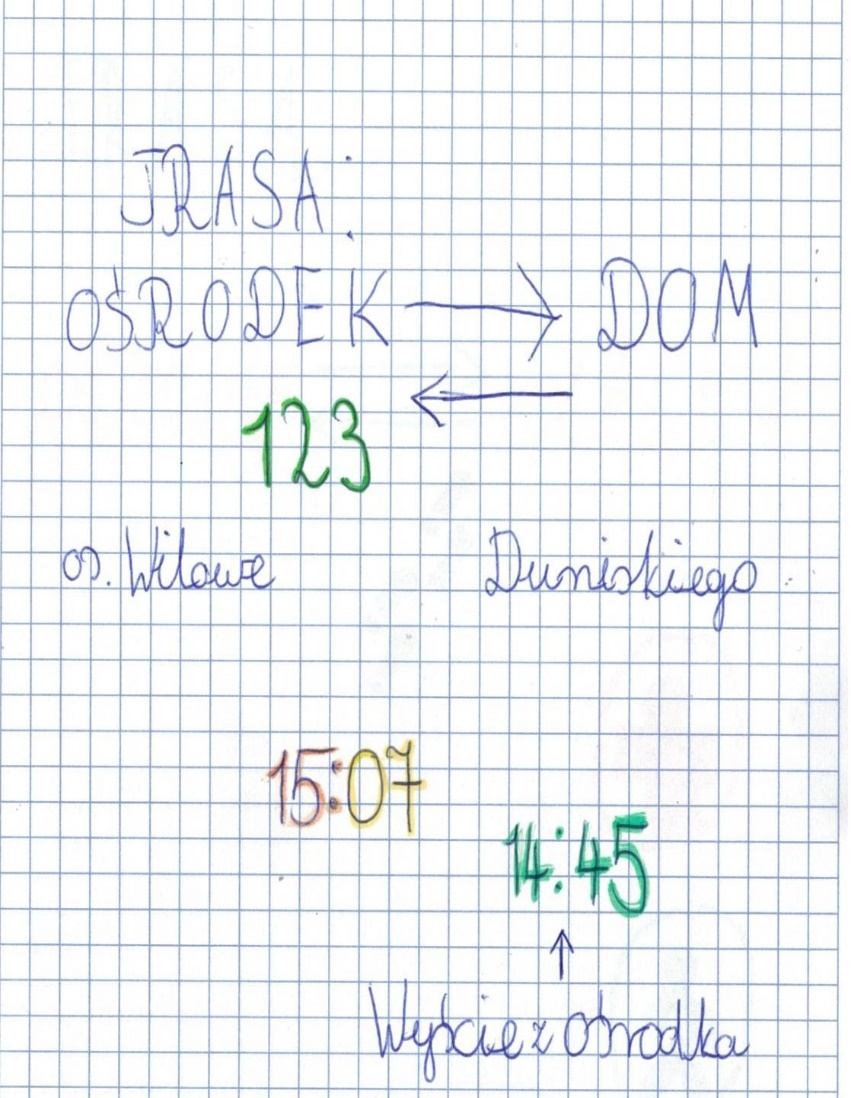 TRASA:
OŚRODEK → DOM
←
123
os. Wilowe Dunskiego
15:07
14:45
↑
Wyjście z Ośrodka